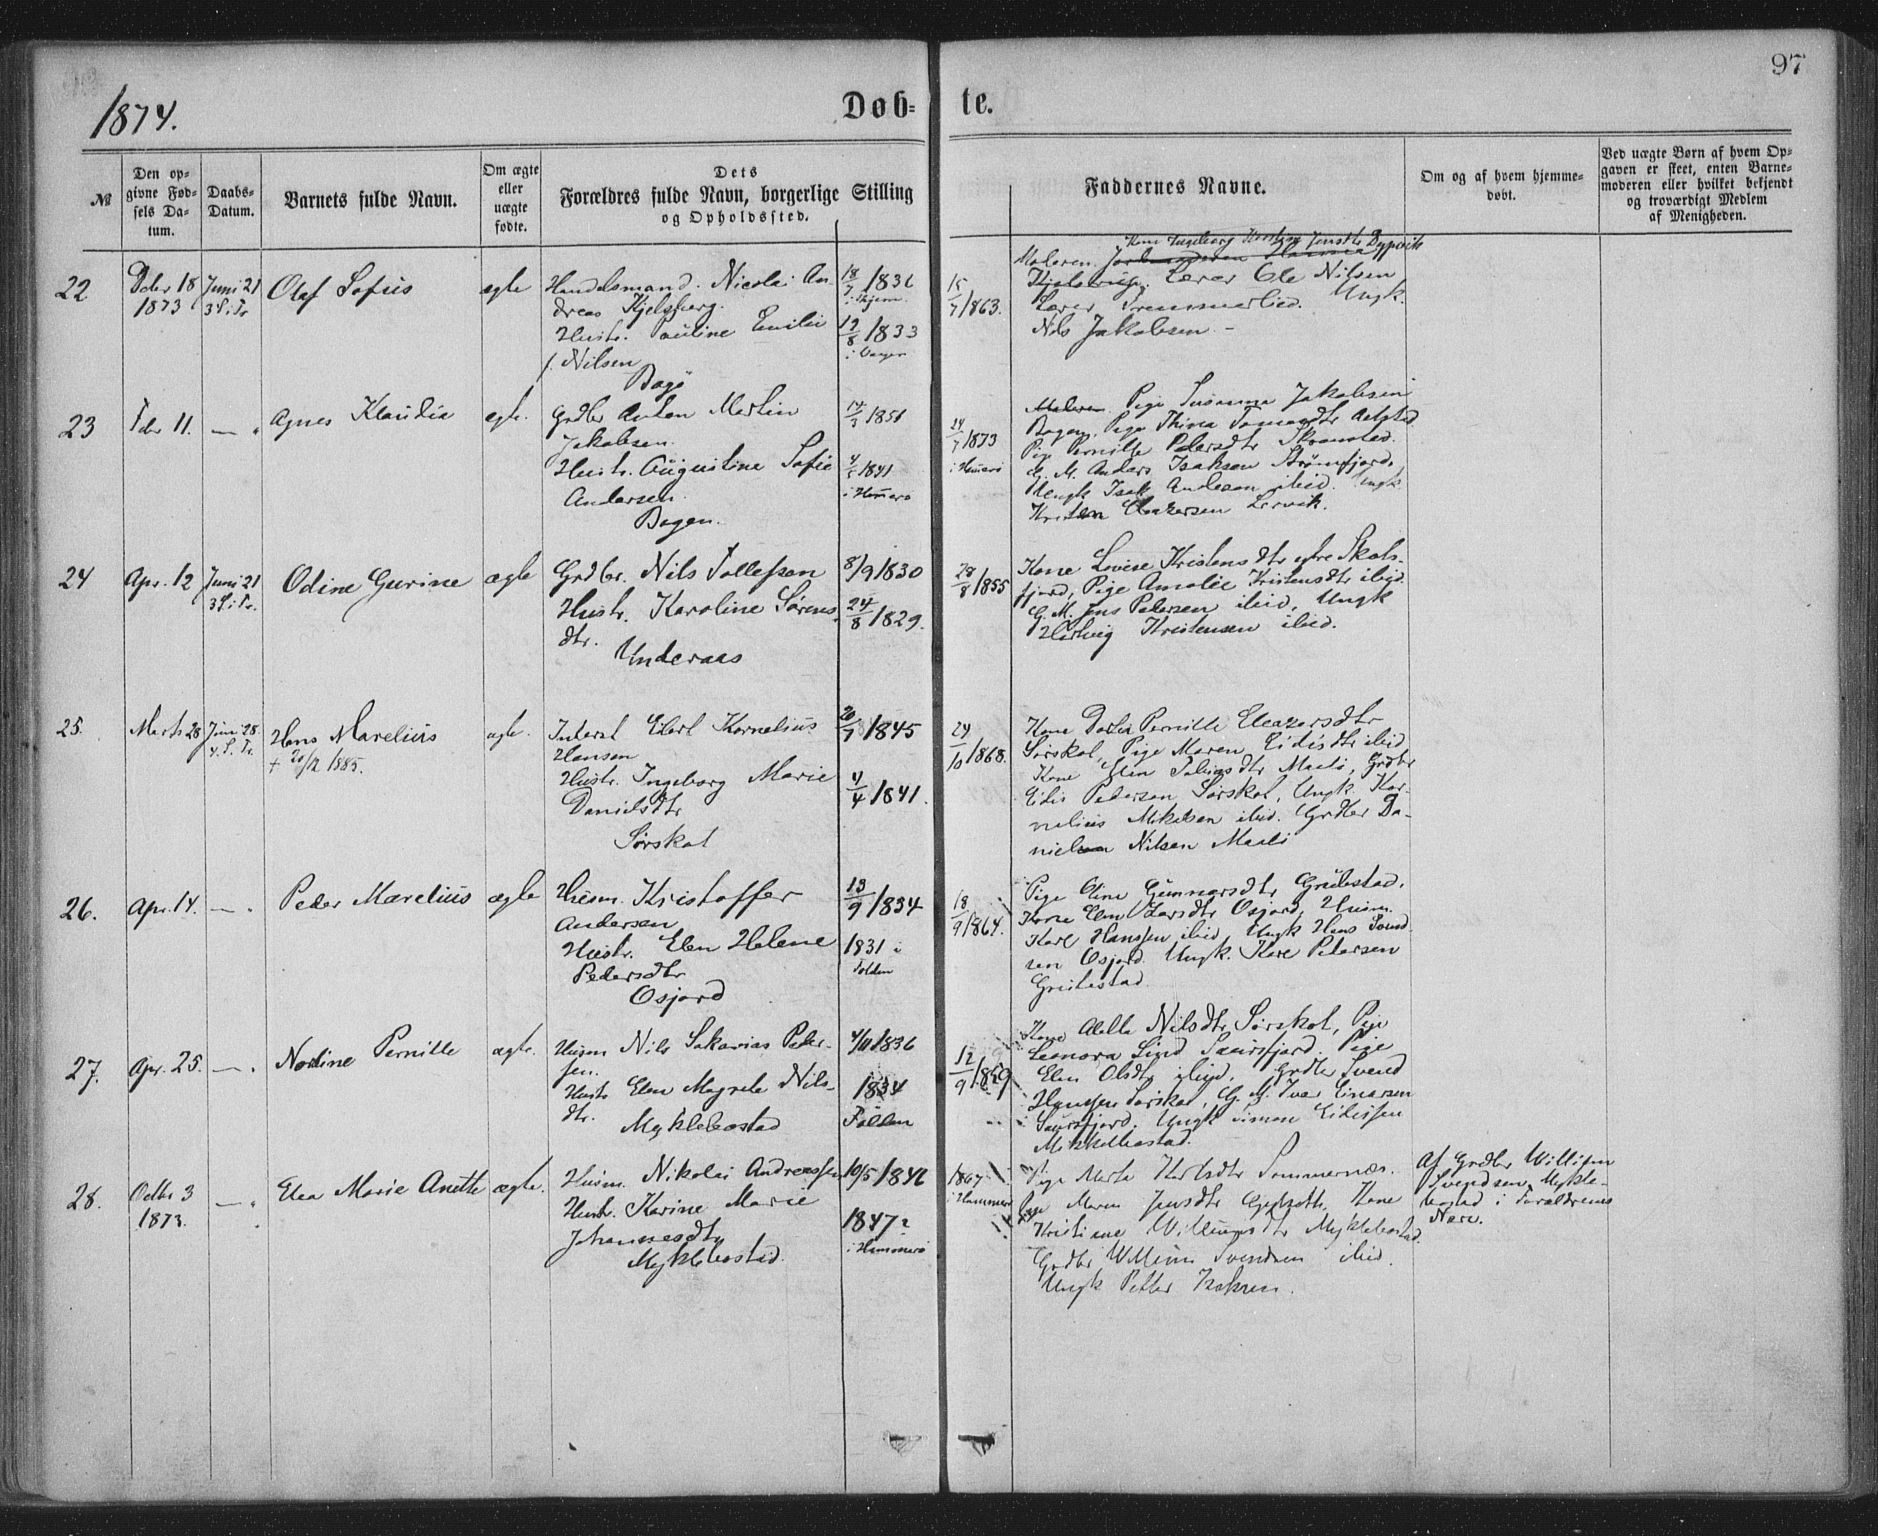 97
1874.
Døb- te.
№
Den op-
givne Fød-
sels Da-
tum.
Daabs-
Datum.
Barnets fulde Navn.
Om ægte
eller
uægte
fødte.
Dets
Forældres fulde Navn, borgerlige Stilling
og Opholdssted.
Faddernes Navne.
Om og af hvem hjemme-
døbt.
Ved uægte Børn af hvem Op-
gaven er skeet, enten Barne-
moderen eller hvilket bekjendt
og troværdigt Medlem
af Menigheden.
22
Dcbr 18
1873
Juni 21
3 S. i Tr
Olaf Sofus
ægte
Handelsmand. Nicolai An
dreas Kjelsberg.
Hustr. Pauline Emilie
f. Nilsen
Bogø
18/7 1836
i Skjern
19/8 1833
15/7 1863.
Kone Ingeborg Jensdtr Dypvik
Lærer Ole Nilsen
Ungk.
Nils Jakobsen
23
Febr 11.
Agnes Klaudia
ægte.
Grdbr Anton Martin
Jakobsen.
Hustr. Augustine Sofie
Andersen.
Bogen.
14/3 1851
1841
i Hammerø
1873
i Hammerø
Pige Susanna Jakobsen
Bogen. Pige
Pige Pernille Pedersdtr Skranstad.
G. M. Anders Isaksen Strømfjord,
Ungk Isak Andersen ibid. Ungk
Eleasersen Lervik.
24
Apr. 12
Juni 21
3 S. i Tr.
Odine Gurine
ægte
Grdbr. Nils Tollefsen
Hustr. Karoline Sørens
dtr.
Underaas
8/9 1830
24/8 1829.
28/8 1855
Kone Lovise Kristensdtr ytre Skots-
fjord, Pige Amalie Kristensdtr ibid.
G. M. Jens Pedersen ibid, Ungk
Hartvig Kristensen ibid.
25.
Marts 28
Juni 28
4. S. Tr.
Hans Marelius
+ 20/12 1885.
ægte.
Inderst Eilert Kornelius
Hansen
Hustr. Ingeborg Marie
Danielsdtr
Sørskot
20/7 1845
4/4 1841.
24/10 1868.
Kone Pernille Eleazersdtr
Sørskot, Pige Maren Eidisdtr ibid
Kone Elen Maalø, Grdbr
Eidis Pedersen Sørskot, Ungk. Kor-
nelius Mikalsen ibid. Grdbr Da-
niel Nilsen Maalø
26.
Apr. 14.
Peder Marelius
ægte
Husm. Kristoffer
Andersen
Hustr. Elen Helene
Pedersdtr
Osjord
13/9 1834
1831 i
Folden
18/9 1864.
Pige Oline Gunnarsdtr Grubestad.
Kone Elen Larsdtr Osjord, Husm.
Karl Hanssen ibid, Ungk Hans Svend
sen Osjord. Ungk. Kare Petersen
Grubestad.
27.
Apr. 25.
Nordine Pernille
ægte.
Husm Nils Sakarias Peder-
sen.
Hustr Elen Magrete Nils-
dtr.
Myklebostad
4/11 1836
1834
Folden
12/9 1859
Kone Nilsdtr Sørskot, Pige
Leonora Lind Saursfjord. Pige
Elen Olsdtr ibid, Grdbr Svend
Hanssen Sørskot, G. M. Iver Einarsen
Saursfjord. Ungk Simon Eidissen
Mikkelbostad.
28.
Octbr 3
1873.
Elea Marie Anette
ægte.
Husm. Nikolai Andreassen
Hustr. Karine Marie
Johannesdtr
Myklebostad.
10/5 1846
1847?
i Hammerø
1867
i Hammerø
Pige Marta Karlsdtr Sommernæs.
Pige Maren Jensdtr Kone
Kristine Willumsdtr Myklebostad
Grdbr Willum Svendsen ibid.
Ungk Petter Isaksen.
Af Grdbr Willum
Svendsen Mykle-
bostad i Forældrenes
Nær.